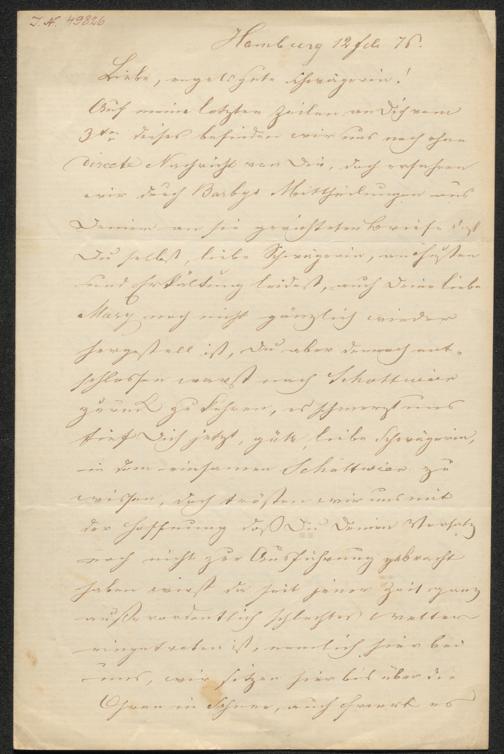 I. N. 49826
Hamburg 12 feb 76.
Liebe, angebetete Schwägerin!
Auf meine letzten Zeilen an Dich vom
3ten dieses befinden wir uns noch ohne
directe Nachricht von Dir, doch erfuhren
wir durch Barbys Mittheilungen aus
Deinem an sie gerichteten Briefe daß
Du selbst, liebe Schwägerin, an Husten
und Erkältung leidest, auch Deine liebe
Mary noch nicht gänzlich wieder
hergestellt ist, Du aber dennoch ent-
schlossen warst nach Schottwien
zurück zu kehren, es schmerzt uns
tief Dich jetzt, gute, liebe Schwägerin,
in dem einsamen Schottwien zu
wissen, doch trösten wir uns mit
der Hoffnung daß Du Deinen Vorsatz
noch nicht zur Ausführung gebracht
haben wirst da seit jener Zeit ganz
außerordentlich schlechtes Wetter
eingetreten ist, nemlich hier bei
uns, wir sitzen hier bis über die
Ohren in Schnee, auch friert es